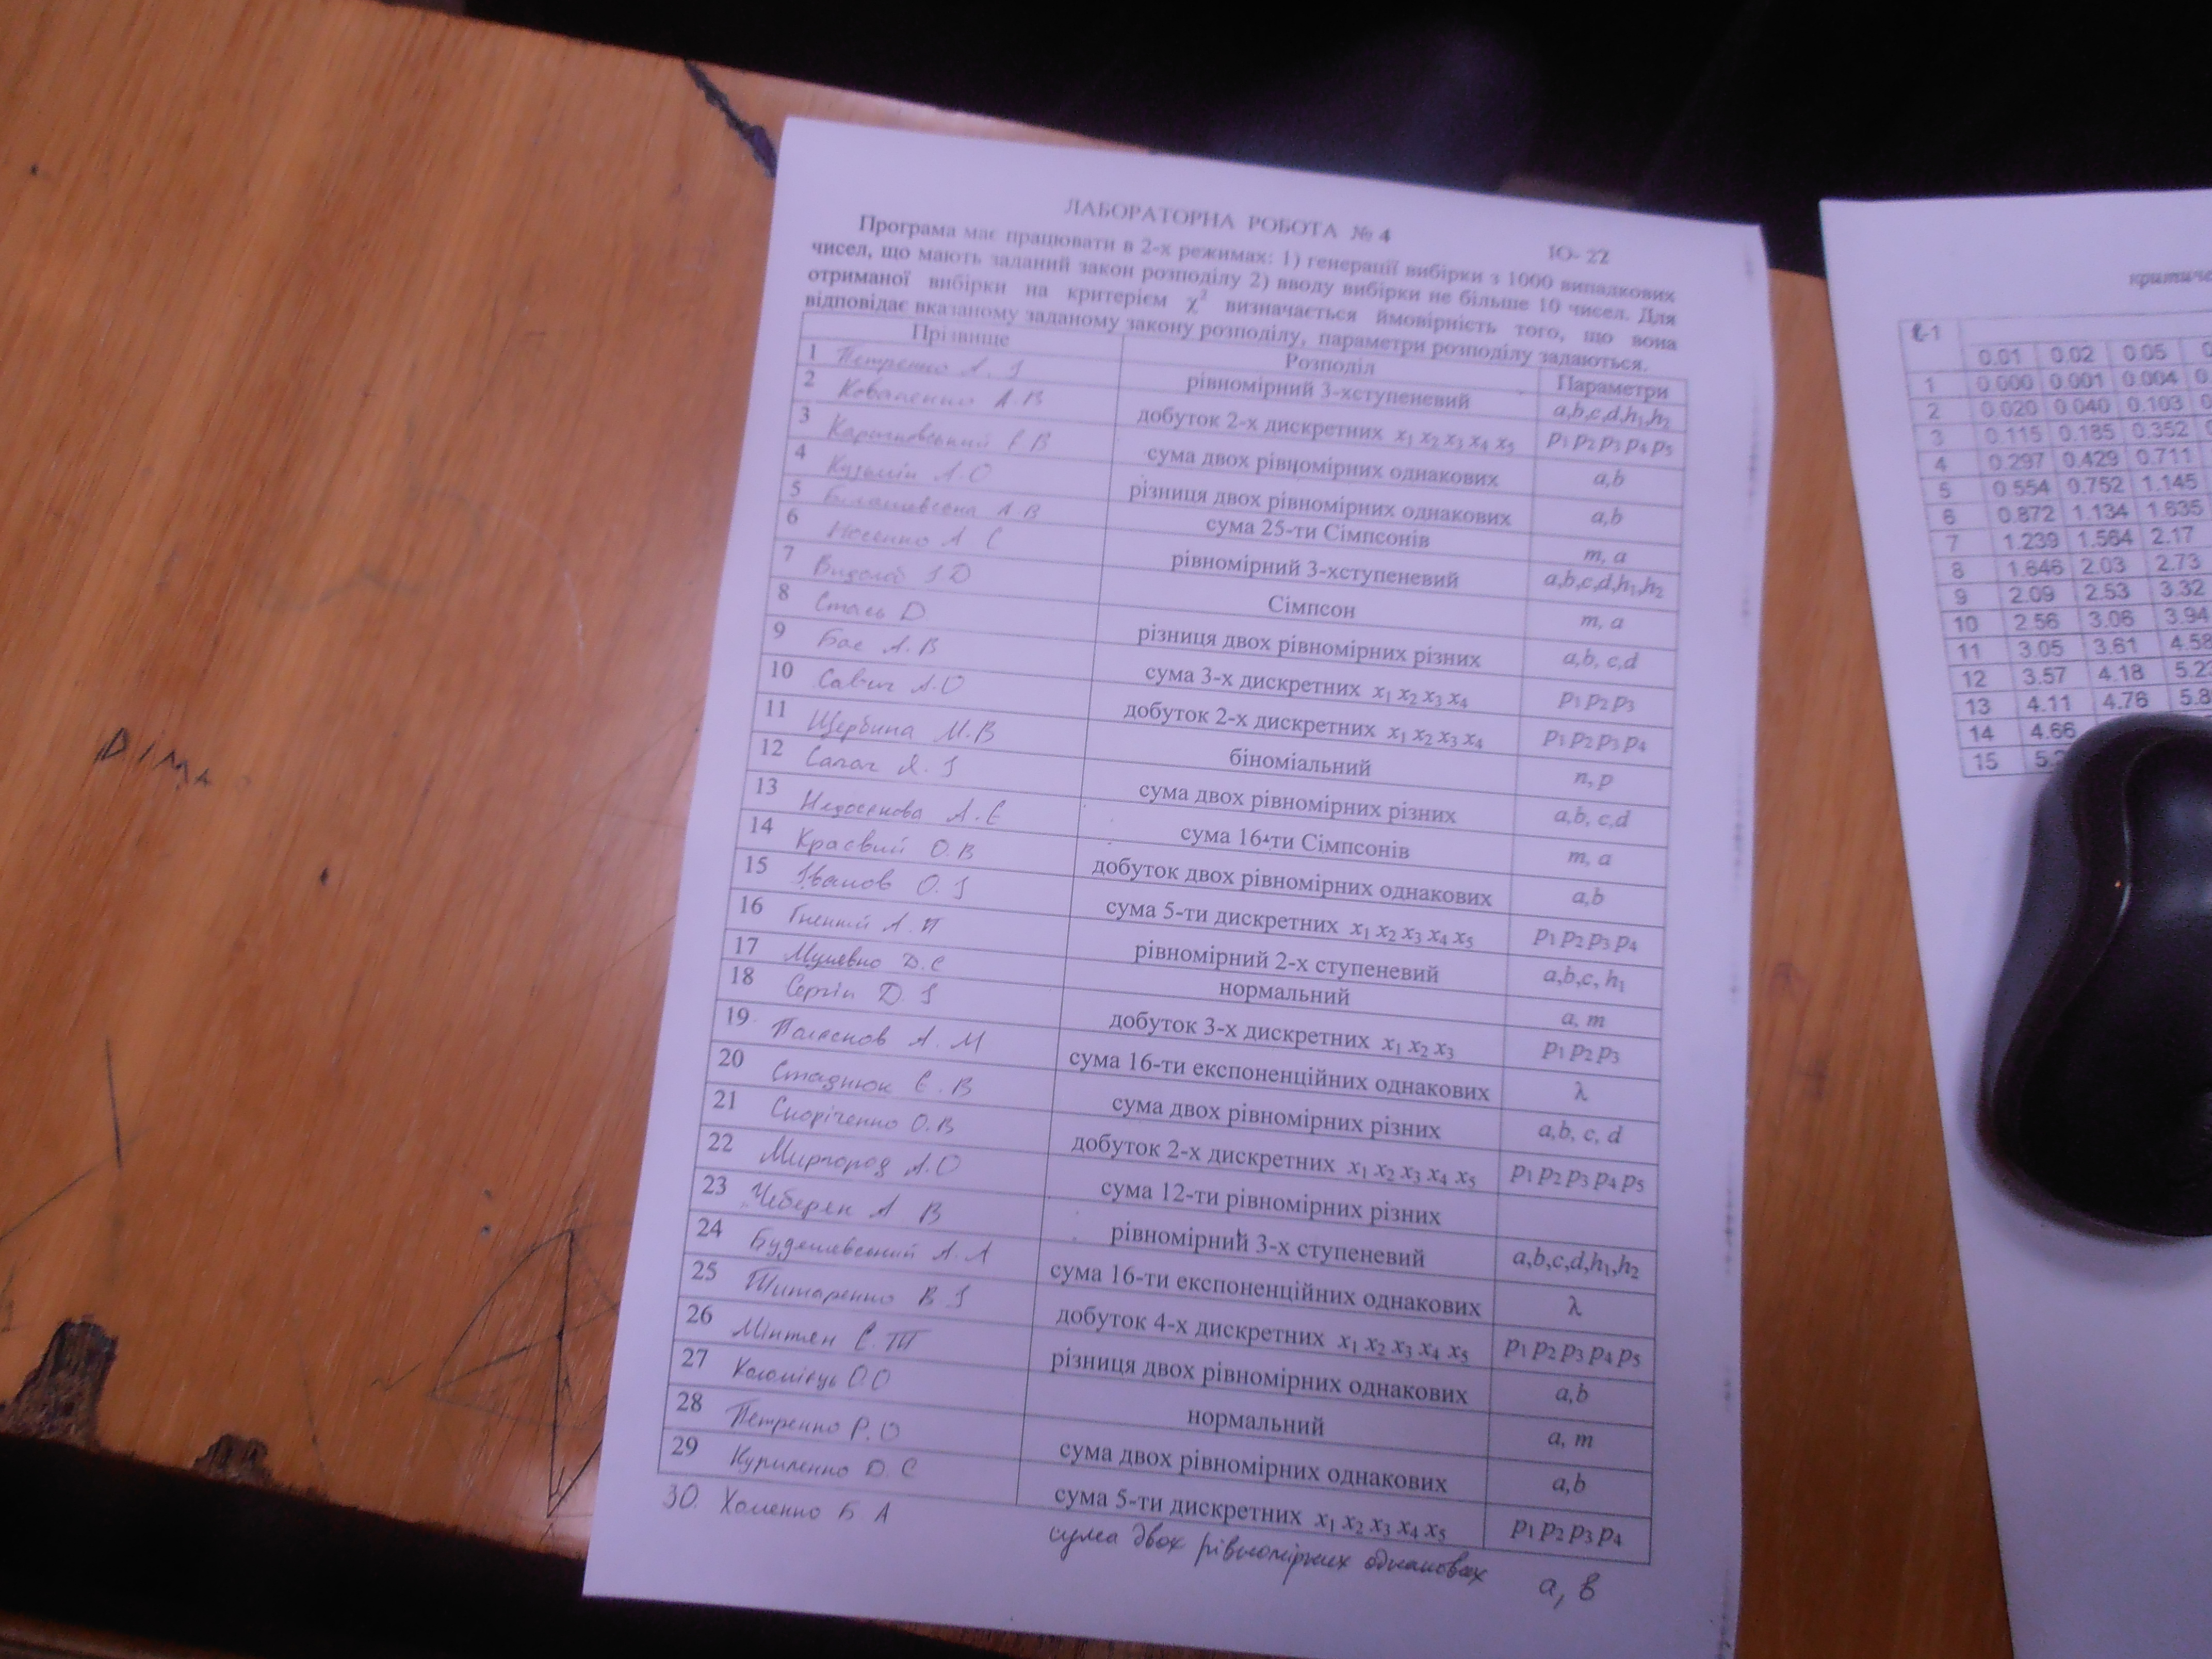 ЛАБОРАТОРНА РОБОТА № 4
ІО-22
Програма має працювати в 2-х режимах: 1) генерації вибірки з 1000 випадкових
чисел, що мають заданий закон розподілу 2) вводу вибірки не більше 10 чисел. Для
отриманої вибірки на критерієм χ² визначається ймовірність того, що вона
відповідає вказаному заданому закону розподілу, параметри розподілу задаються.
Прізвище Розподіл Параметри
1 Петренко А. І рівномірний 3-хступеневий a,b,c,d,h1,h2
2 Коваленко А.В добуток 2-х дискретних x1 x2 x3 x4 x5 p1 p2 p3 p4 p5
3 сума двох рівномірних однакових a,b
4 Кузьмін А.О різниця двох рівномірних однакових a,b
5 А.В сума 25-ти Сімпсонів m, a
6 Носенко А С рівномірний 3-хступеневий a,b,c,d,h1,h2
7 І D Сімпсон m, a
8 Стась D різниця двох рівномірних різних a,b, c,d
9 Бас А.В сума 3-х дискретних x1 x2 x3 x4 p1 p2 p3
10 Савич А.О добуток 2-х дискретних x1 x2 x3 x4 p1 p2 p3 p4
11 Щербина М.В біноміальний n, p
12 сума двох рівномірних різних a,b, c,d
13 А.Є сума 16-ти Сімпсонів m, a
14 Краєвий О.В добуток двох рівномірних однакових a,b
15 Іванов О. І сума 5-ти дискретних x1 x2 x3 x4 x5 p1 p2 p3 p4
16 рівномірний 2-х ступеневий a,b,c, h1
17 D.С нормальний a, m
18 Сергін D. І добуток 3-х дискретних x1 x2 x3 p1 p2 p3
19 А. М сума 16-ти експоненційних однакових λ
20 Стаднюк Є. В сума двох рівномірних різних a,b, c, d
21 Скоріченко О.В добуток 2-х дискретних x1 x2 x3 x4 x5 p1 p2 p3 p4 p5
22 Миргород А.О сума 12-ти рівномірних різних
23 Чеберяк А В рівномірний 3-х ступеневий a,b,c,d,h1,h2
24 А. А сума 16-ти експоненційних однакових λ
25 Титаренко В І добуток 4-х дискретних x1 x2 x3 x4 x5 p1 p2 p3 p4 p5
26 Мінтян Є. Т різниця двох рівномірних однакових a,b
27 Коломієць О.О нормальний a, m
28 Петренко Р. О сума двох рівномірних однакових a,b
29 Куриленко D. С сума 5-ти дискретних x1 x2 x3 x4 x5 p1 p2 p3 p4
30. Хоменко Б А сума двох рівномірних однакових а, в
критиче
ℓ-1
0.01 0.02 0.05
1 0.000 0.001 0.004
2 0.020 0.040 0.103
3 0.115 0.185 0.352
4 0.297 0.429 0.711
5 0.554 0.752 1.145
6 0.872 1.134 1.635
7 1.239 1.564 2.17
8 1.646 2.03 2.73
9 2.09 2.53 3.32
10 2.56 3.06 3.94
11 3.05 3.61 4.58
12 3.57 4.18 5.2
13 4.11 4.76 5.8
14 4.66
15 5.2
DIMA